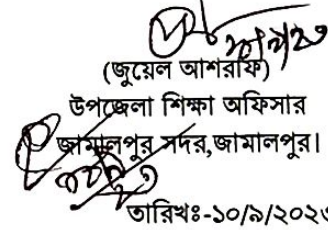 (জুয়েল আশরাফ)
উপজেলা শিক্ষা অফিসার
জামালপুর সদর, জামালপুর।
তারিখঃ-১০/৯/২০২৩